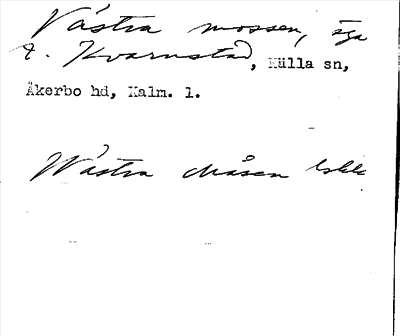 Västra mossen, äga
t. Kvarnstad, Källa sn,
Åkerbo hd, Kalm. l.
Wästra Måsen